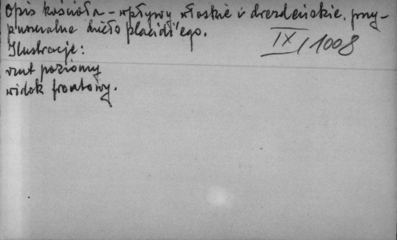 Opis kościoła - wpływy włoskie i drezdeńskie, przy-
puszczalne dzieło placidi'ego.
IX/1008
Ilustracje:
rzut poziomy
widok frontowy.